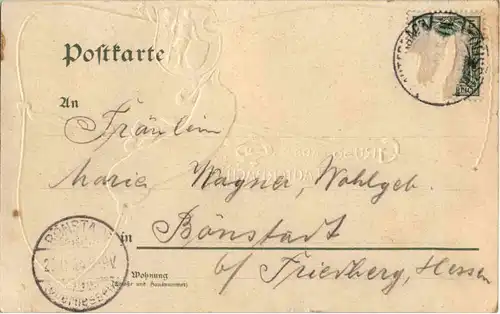 Postkarte
An
Fräulein
Marie Wagner, Wohlgeb.
in Bönstadt
b/ Friedberg, Hessen
Wohnung
(Straße und Hausnummer)
BÖNSTA